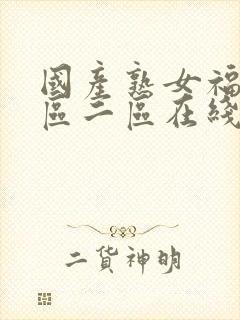 國產熟女福
區二區在綫
二货神明